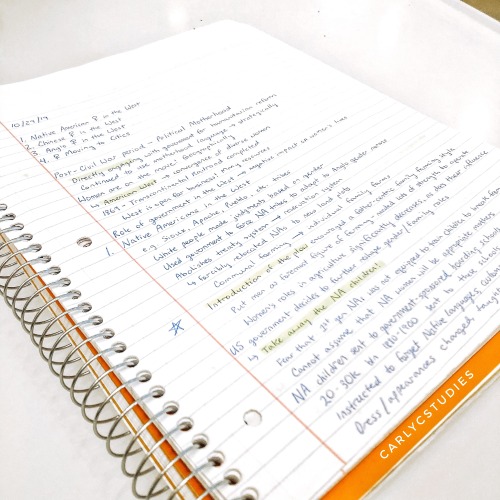 10/29/19
1. Native American ♀ in the West
2. Chinese ♀ in the West
3. Anglo ♀ in the West
4. ♀ Moving to Cities
Post-Civil War period - Political Motherhood
Directly engaging with government for humanitarian reform
Continued to use motherhood language → strategically
Women are on the move! Geographically
↳ American West → convergence of diverse women
1869 - Transcontinental Railroad completed
West is open for business! Many resources
Role of government in the West → negative impact on women's lives
1. Native Americans in the West
e.g. Sioux, Apache, Pueblo, etc. tribes
White people made judgments based on gender
Used government to for NA tribes to adapt to Anglo gender norms
Abolishes treaty system → reservation system
↳ forcibly relocated NAs to new land plots
Communal farming → individual family farms
Introduction of the plow encouraged a father-centric family farming style
Put men as foremost figure of farming; needed lots of strength to operate
Women's roles in agriculture significantly decreases, as does their influence
US government decides to further reshape gender/family roles
↳ Take away the NA children!
Fear that gen NAs was not equipped to raise children to
Cannot assume that NA women will be appropriate mothers
NA children sent to government-sponsored boarding schools
20-30K b/w 1880-1900 sent to these schools
Instructed to forget Native languages,
Dress/appearances changed
CARLYCSTUDIES